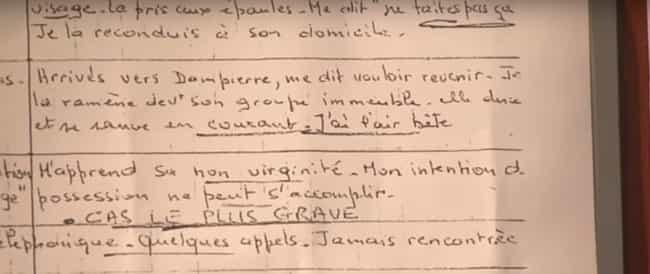 visage. La pris aux épaules. Me dit "ne faites pas ça
Je la reconduis à son domicile.
s. Arrivés vers Dampierre, me dit vouloir revenir. Je
la ramène devt son groupe immeuble. elle
et se sauve en courant. J'ai l'air bête
tion M'apprend sa non virginité. Mon intention d
ge" possession ne peut s'accomplir.
• CAS LE PLUS GRAVE
elephonique. Quelques appels. Jamais rencontrée